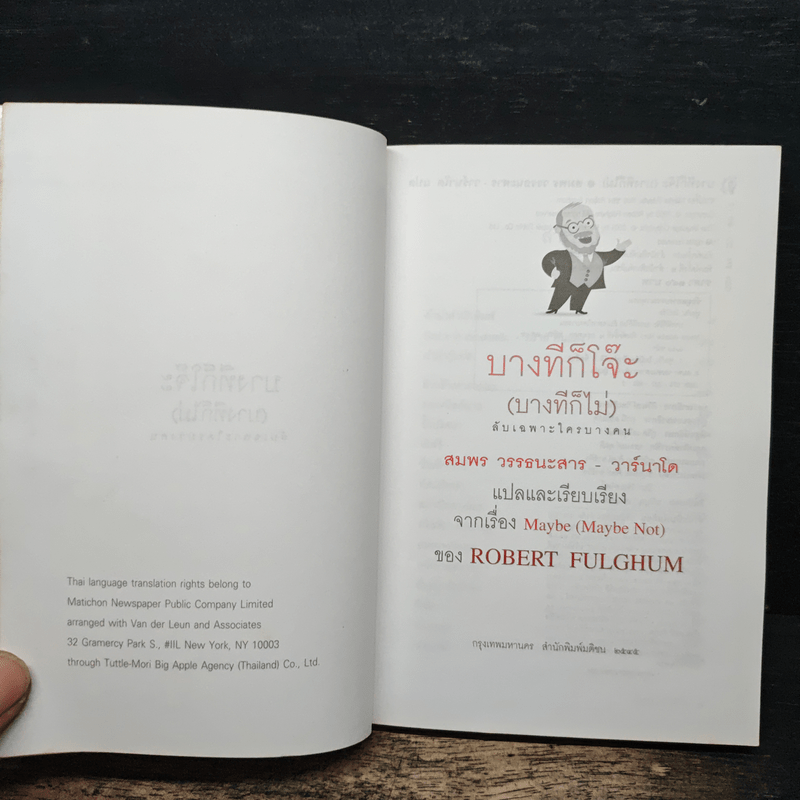 Thai language translation rights belong to
Matichon Newspaper Public Company Limited
arranged with Van der Leun and Associates
32 Gramercy Park S., #IIL New York, NY 10003
through Tuttle-Mori Big Apple Agency (Thailand) Co., Ltd.
บางทีก็โจ๊ะ
(บางทีก็ไม่)
ลับเฉพาะใครบางคน
สมพร วรรธนะสาร - วาร์นาโด
แปลและเรียบเรียง
จากเรื่อง Maybe (Maybe Not)
ของ ROBERT FULGHUM
กรุงเทพมหานคร สำนักพิมพ์มติชน ๒๕๔๕